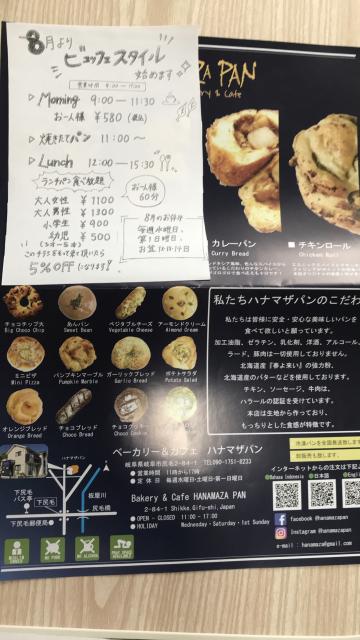 8月より
ビュッフェスタイル
始めます
営業時間 9:00〜17:00
▷ Morning 9:00〜11:30
お一人様 ¥580 (税込)
▷ 焼きたてパン 11:00〜
▷ Lunch 12:00〜15:30
ランチパン食べ放題
お一人様
60分
大人女性 ¥1100
大人男性 ¥1300
小学生 ¥900
幼児 ¥500
このチラシをもって来て頂いたら
5%OFFになります!
8月のお休み
毎週水曜日、
第1日曜日、
お盆 12.13.14日
ZA PAN
ry & Cafe
カレーパン
Curry Bread
■ チキンロール
Chicken Roll
チョコチップ大
Big Choco Chip
あんパン
Sweet Bean
ベジタブルチーズ
Vegetable Cheese
アーモンドクリーム
Almond Cream
ミニピザ
Mini Pizza
パンプキンマーブル
Pumpkin Marble
ガーリックブレッド
Garlic Bread
ポテトサラダ
Potato Salad
オレンジブレッド
Orange Bread
チョコブレッド
Choco Bread
チョコクッキー
チョコブレッド
Choco Bread
私たちハナマザパンのこだわ
私たちは皆様に安全・安心な美味しいパンを
食べて欲しいと願っています。
加工油脂、ゼラチン、乳化剤、洋酒、アルコール、
ラード、豚肉は一切使用しておりません。
北海道産『春よ来い』の強力粉、
北海道産のバターなどを使用しております。
チキン、ソーセージ、牛肉は、
ハラールの認証を受けています。
本店は生地から作っており、
もっちりとした食感が特徴です。
ベーカリー&カフェ ハナマザパン
岐阜県岐阜市尻毛2-84-1 TEL090-1751-8233
● 営業時間 11時から17時
● 定休日 毎週水曜日・土曜日・第一日曜日
Bakery & Cafe HANAMAZA PAN
2-84-1 Shikke, Gifu-shi, Japan
● OPEN - CLOSED 11:00 - 17:00
● HOLIDAY Wednesday・Saturday・1st Sunday
ハナマザパン
下尻毛
バス亭
板屋川
尻毛橋
下尻毛郵便局
冷凍パンを全国発送致します
卸販売も致します。
インターネットからの注文は下記よ
Bahasa Indonesia
日本語
facebook @hanamazapan
Instagram @hanamazapan
e-mail : hanamaza@gmail.com
MUSLIM
NO PORK
NO ALCOHOL